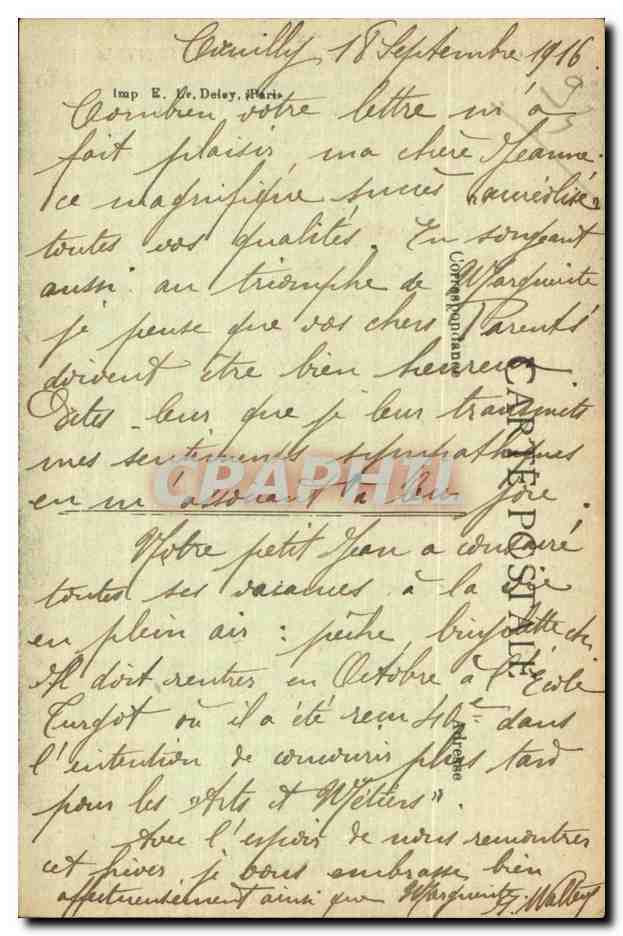 18 Septembre 1916
Imp E. Le Deley, Paris
Combien votre lettre m'a
fait plaisir, ma chère Jeanne.
ce magnifique succès "auréolise"
toutes vos qualités. En songeant
aussi au triomphe de Marguerite
je pense que vos chers Parents
doivent être bien heureux
Dites-leur que je leur transmets
mes sentiments sympathiques
en m'associant à leur joie.
Notre petit Jean a consacré
toutes ses vacances à la vie
en plein air : pêche, bicyclette etc.
Il doit rentrer en Octobre à l'École
Turgot où il a été reçu 46e dans
l'intention de concourir plus tard
pour les "Arts et Métiers".
Avec l'espoir de nous rencontrer
cet hiver je vous embrasse bien
affectueusement ainsi que Marguerite
CARTE POSTALE
Correspondance
Adresse
CPAPHIL